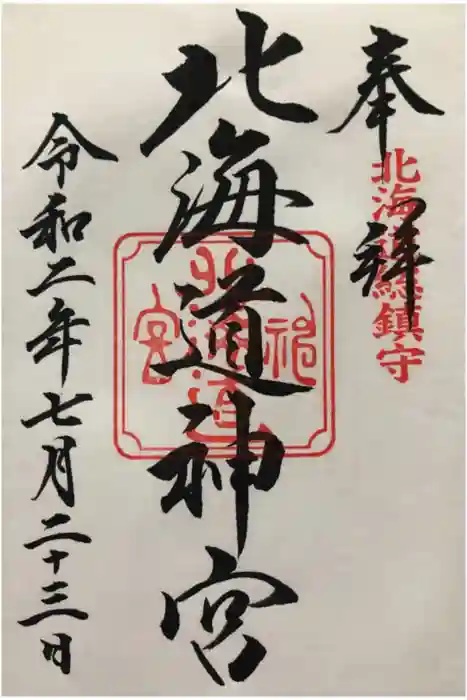 奉拝
北海道総鎮守
北海道神宮
北海道神宮
令和二年七月二十三日